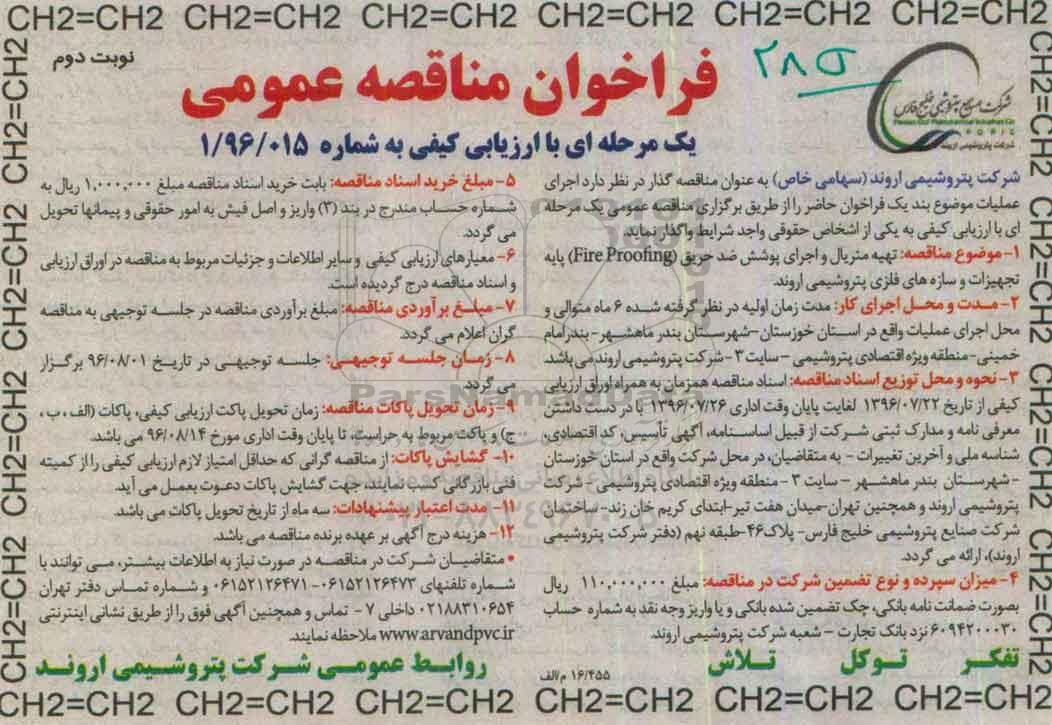 CH2=CH2 CH2=CH2 CH2=CH2 CH2=CH2 CH2=CH2 CH2=CH2
نوبت دوم
۲۸۵
فراخوان مناقصه عمومی
یک مرحله ای با ارزیابی کیفی به شماره ۱/۹۶/۰۱۵
شرکت صنایع پتروشیمی خلیج فارس
شرکت پتروشیمی اروند
شرکت پتروشیمی اروند (سهامی خاص) به عنوان مناقصه گذار در نظر دارد اجرای
عملیات موضوع بند یک فراخوان حاضر را از طریق برگزاری مناقصه عمومی یک مرحله
ای با ارزیابی کیفی به یکی از اشخاص حقوقی واجد شرایط واگذار نماید.
۱- موضوع مناقصه: تهیه متریال و اجرای پوشش ضد حریق (Fire Proofing) پایه
تجهیزات و سازه های فلزی پتروشیمی اروند.
۲- مـدت و محـل اجرای کار: مدت زمان اولیه در نظر گرفته شـده ۶ ماه متوالی و
محل اجرای عملیات واقع در اسـتان خوزستان-شهرسـتان بندر ماهشـهر-بندرامام
خمینی-منطقه ویژه اقتصادی پتروشیمی -سایت ۳ - شرکت پتروشیمی اروند می باشد.
۳- نحوه و محل توزیع اسناد مناقصه: اسناد مناقصه همزمان به همراه اوراق ارزیابی
کیفی از تاریخ ۱۳۹۶/۰۷/۲۲ لغایت پایان وقت اداری ۱۳۹۶/۰۷/۲۶ با در دست داشتن
معرفی نامه و مدارک ثبتی شـرکت از قبیل اساسـنامه، آگهی تأسیس، کد اقتصادی،
شناسه ملی و آخرین تغییرات - به متقاضیان، در محل شرکت واقع در استان خوزستان
- شهرسـتان بندر ماهشـهر - سایت ۳ - منطقه ویژه اقتصادی پتروشیمی- شرکت
پتروشیمی اروند و همچنین تهران-میدان هفت تیر-ابتدای کریم خان زند- ساختمان
شرکت صنایع پتروشیمی خلیج فارس- پلاک۴۶-طبقه نهم (دفتر شرکت پتروشیمی
اروند)، ارائه می گردد.
۴- میزان سپرده و نوع تضمین شرکت در مناقصه: مبلغ ۱۱۰,۰۰۰,۰۰۰ ریال
بصورت ضمانت نامه بانکی، چک تضمین شده بانکی و یا واریز وجه نقد به شماره حساب
۶۰۹۴۲۰۰۰۳۰ نزد بانک تجارت - شعبه شرکت پتروشیمی اروند.
۵- مبلغ خرید اسناد مناقصه: بابت خرید اسناد مناقصه مبلغ ۱,۰۰۰,۰۰۰ ریال به
شـماره حسـاب مندرج در بند (۳) واریز و اصل فیش به امور حقوقی و پیمانها تحویل
می گردد.
۶- معیارهای ارزیابی کیفی و سایر اطلاعات و جزئیات مربوط به مناقصه در اوراق ارزیابی
و اسناد مناقصه درج گردیده است.
۷- مبلـغ برآوردی مناقصه: مبلغ برآوردی مناقصه در جلسـه توجیهی به مناقصه
گران اعلام می گردد.
۸- زمـان جلسـه توجیهـی: جلسـه توجیهـی در تاریـخ ۹۶/۰۸/۰۱ برگـزار
می گردد.
۹- زمان تحویل پاکات مناقصه: زمان تحویل پاکت ارزیابی کیفی، پاکات (الف ، ب ،
ج) و پاکت مربوط به حراست، تا پایان وقت اداری مورخ ۹۶/۰۸/۱۴ می باشد.
۱۰- گشایش پاکات: از مناقصه گرانی که حداقل امتیاز لازم ارزیابی کیفی را از کمیته
فنی بازرگانی کسب نمایند، جهت گشایش پاکات دعـوت بعمـل می آید.
۱۱- مدت اعتبار پیشنهادات: سه ماه از تاریخ تحویل پاکات می باشد.
۱۲- هزینه درج آگهی بر عهده برنده مناقصه می باشد.
* متقاضیـان شـرکت در مناقصـه در صورت نیاز به اطلاعات بیشـتر، می توانند با
شـماره تلفنهای ۰۶۱۵۲۱۲۶۴۷۳-۰۶۱۵۲۱۲۶۴۷۱ و شـماره تمـاس دفتر تهران
۰۲۱۸۸۳۱۰۶۵۴ داخلی ۷ - تماس و همچنین آگهی فوق را از طریق نشانی اینترنتی
www.arvandpvc.ir ملاحظه نمایند.
ParsNamadData
تفکـر تـوکل تـلاش
۱۶/۴۵۵ م/الف
روابـط عمومـی شـرکت پتروشـیمی ارونـد
CH2=CH2 CH2=CH2 CH2=CH2 CH2=CH2 CH2=CH2 CH2=CH2
CH2=CH2 CH2=CH2 CH2=CH2 CH2=CH2
CH2=CH2 CH2=CH2 CH2=CH2 CH2=CH2